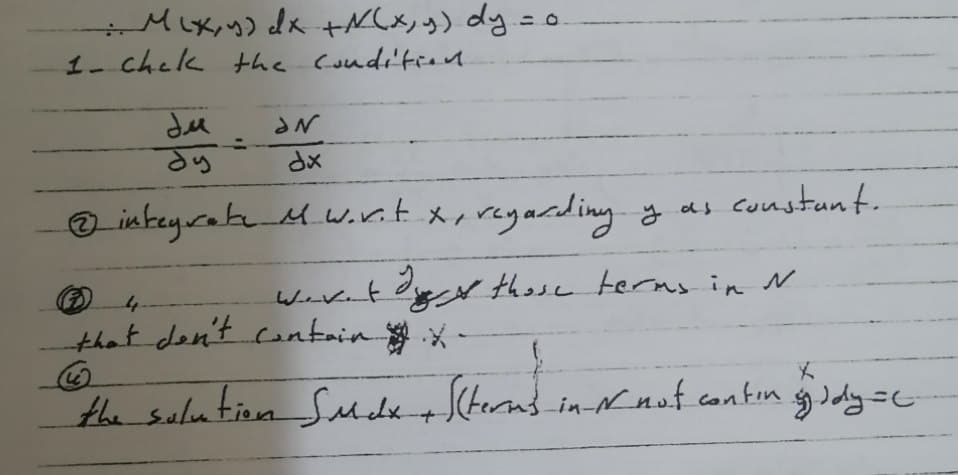 ∴ M(x,y) dx + N(x,y) dy = 0
1- Chek the Condition
∂M/∂y = ∂N/∂x
② integrate M w.r.t x, regarding y as constant.
③ " w.r.t y those terms in N
that don't contain x.
④
the solution ∫Mdx + ∫(terms in N not contin x)dy = c